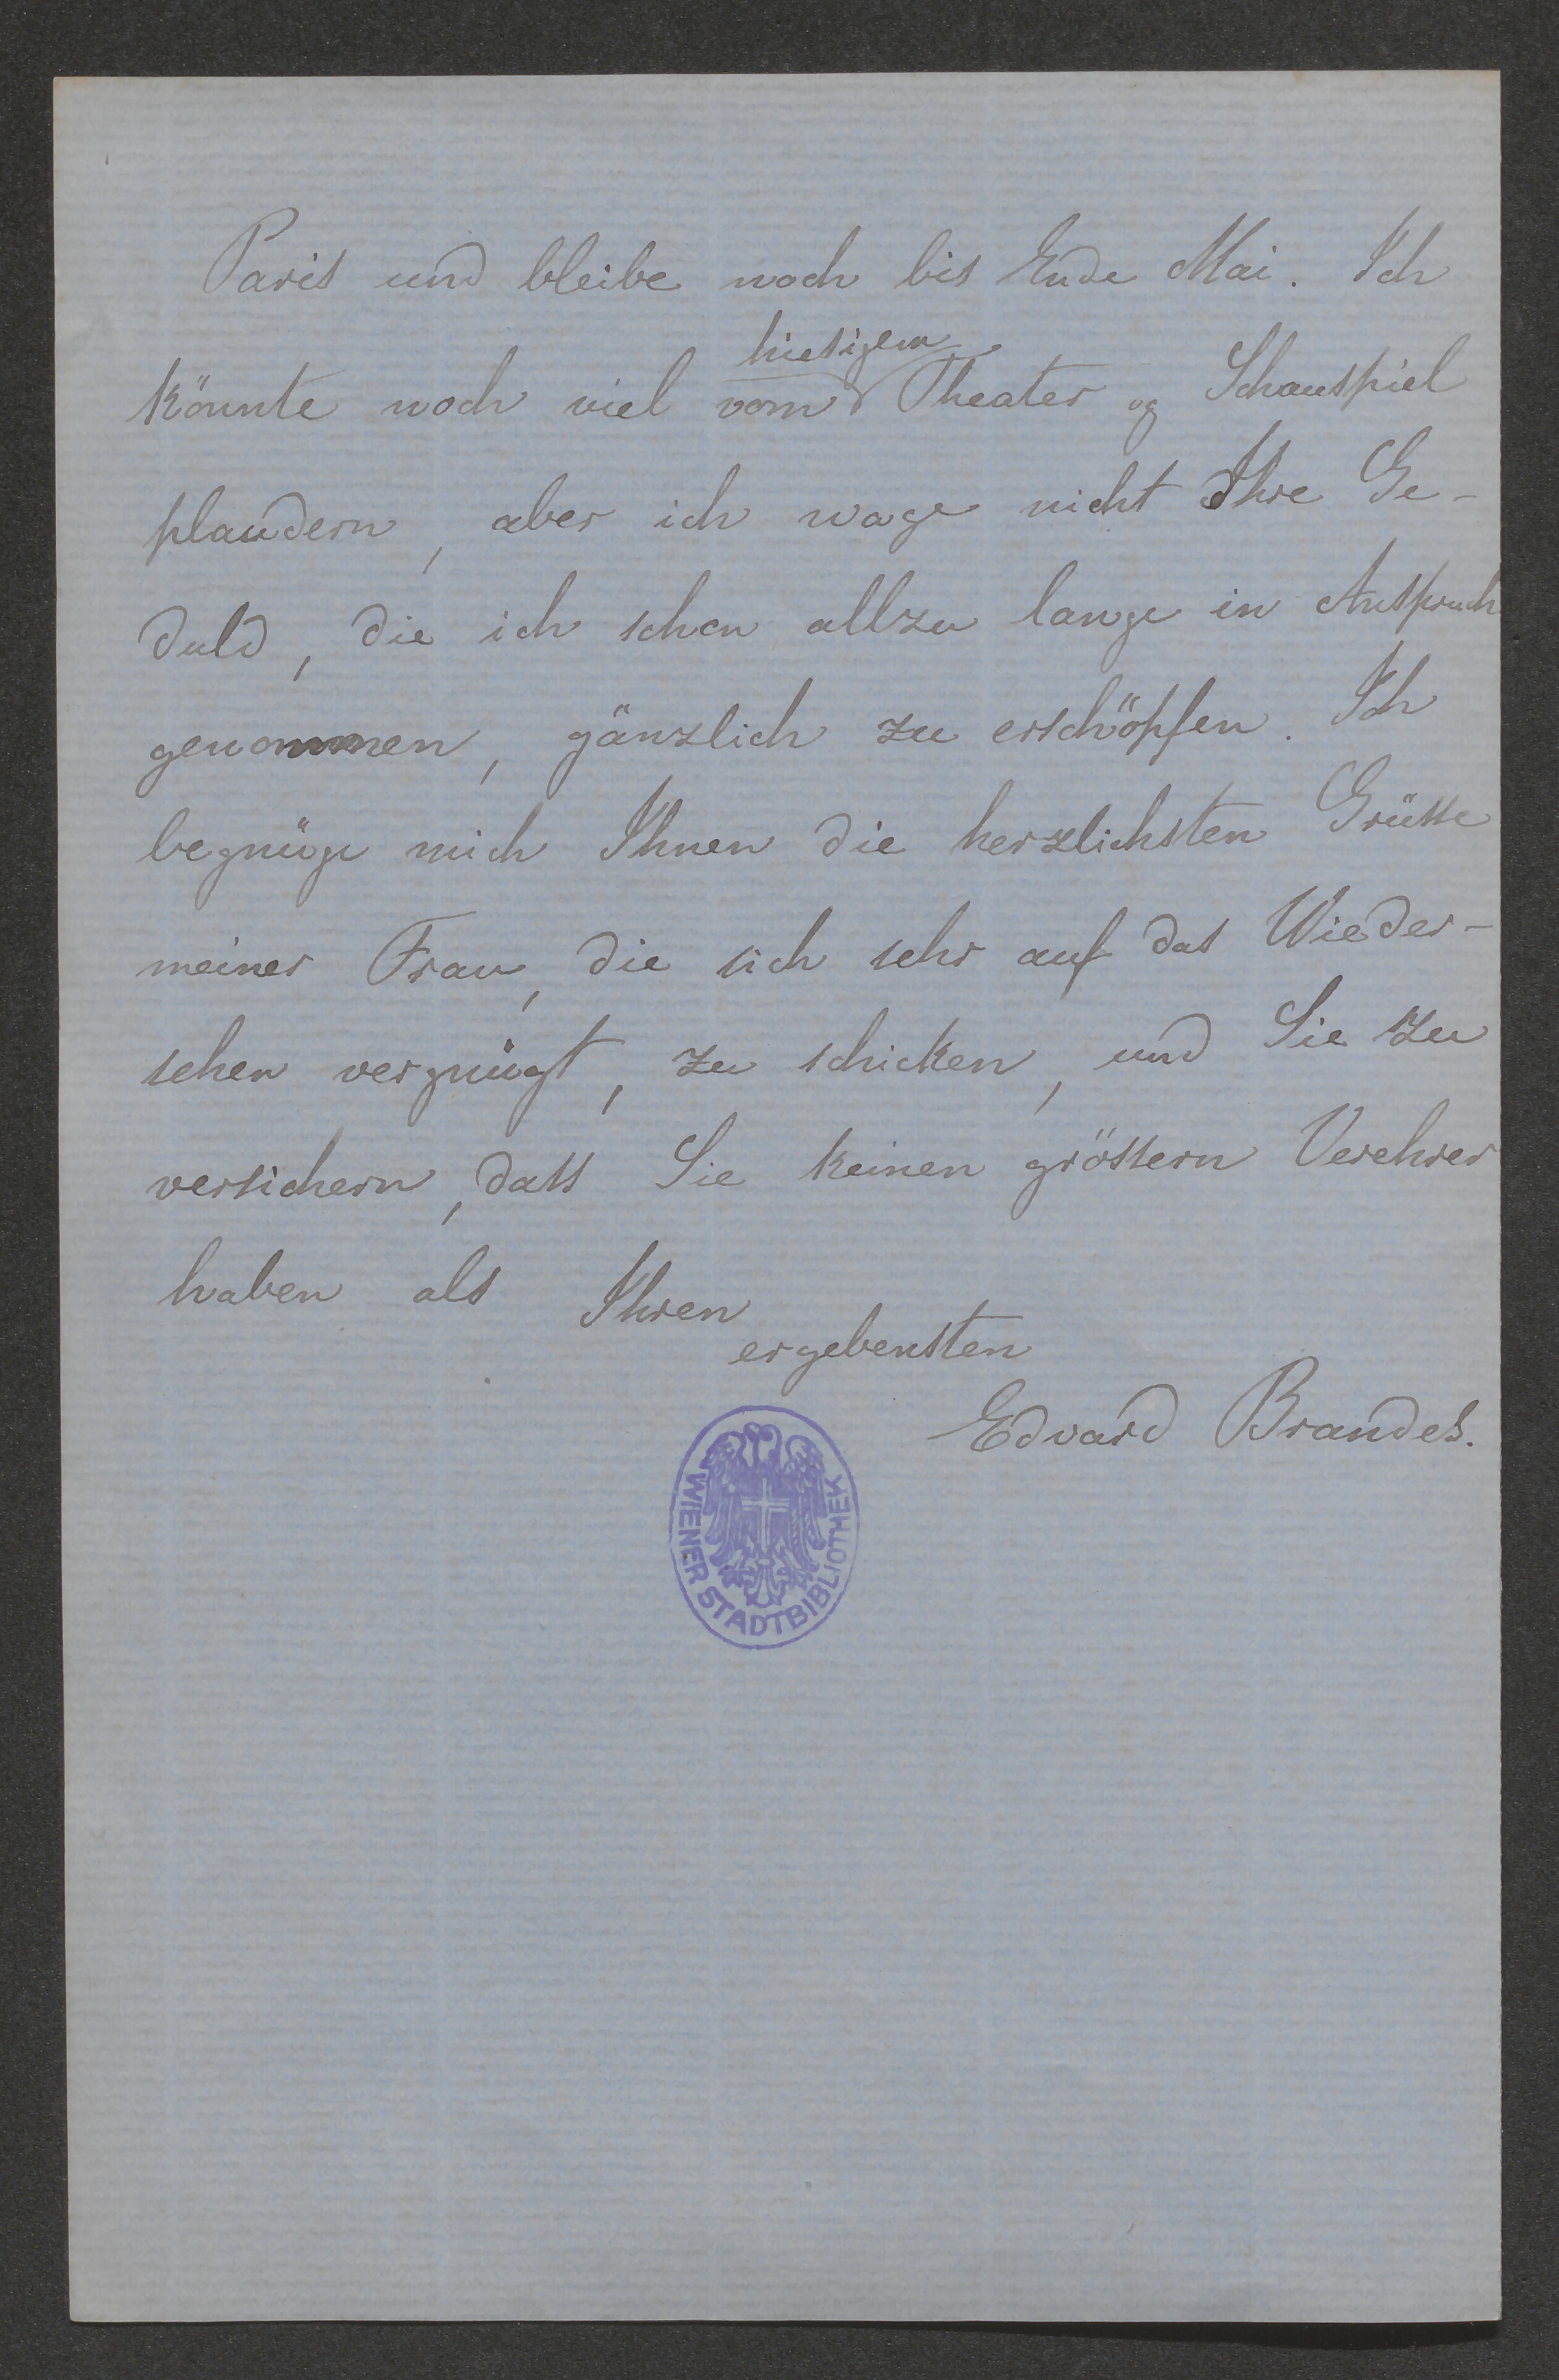 Paris und bleibe noch bis Ende Mai. Ich
hiesigem
könnte noch viel vom Theater og Schauspiel
plaudern, aber ich wage nicht Ihre Ge-
duld, die ich schon allzu lange in Anspruch
genommen, gänzlich zu erschöpfen. Ich
begnüge mich Ihnen die herzlichsten Grüsse
meiner Frau, die sich sehr auf das Wieder-
sehen vergnügt, zu schicken, und Sie zu
versichern, dass Sie keinen grössern Verehrer
haben als Ihren
ergebensten
Edvard Brandes.
WIENER STADTBIBLIOTHEK